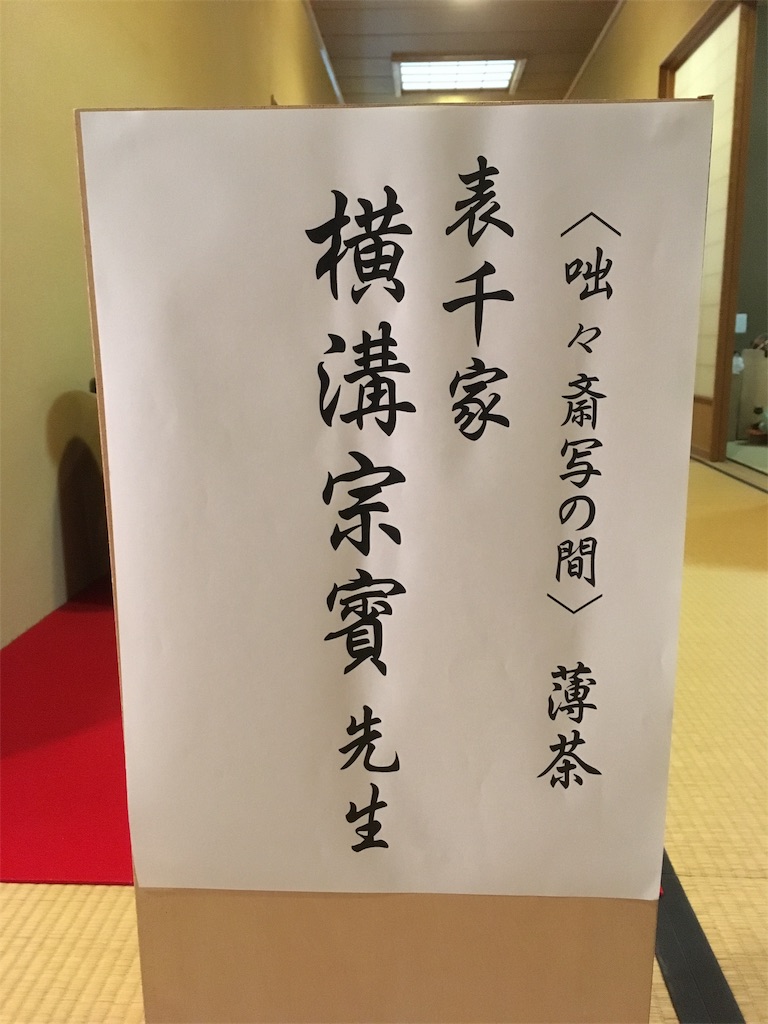 〈咄々斎写の間〉 薄茶
表千家
横溝宗賓先生